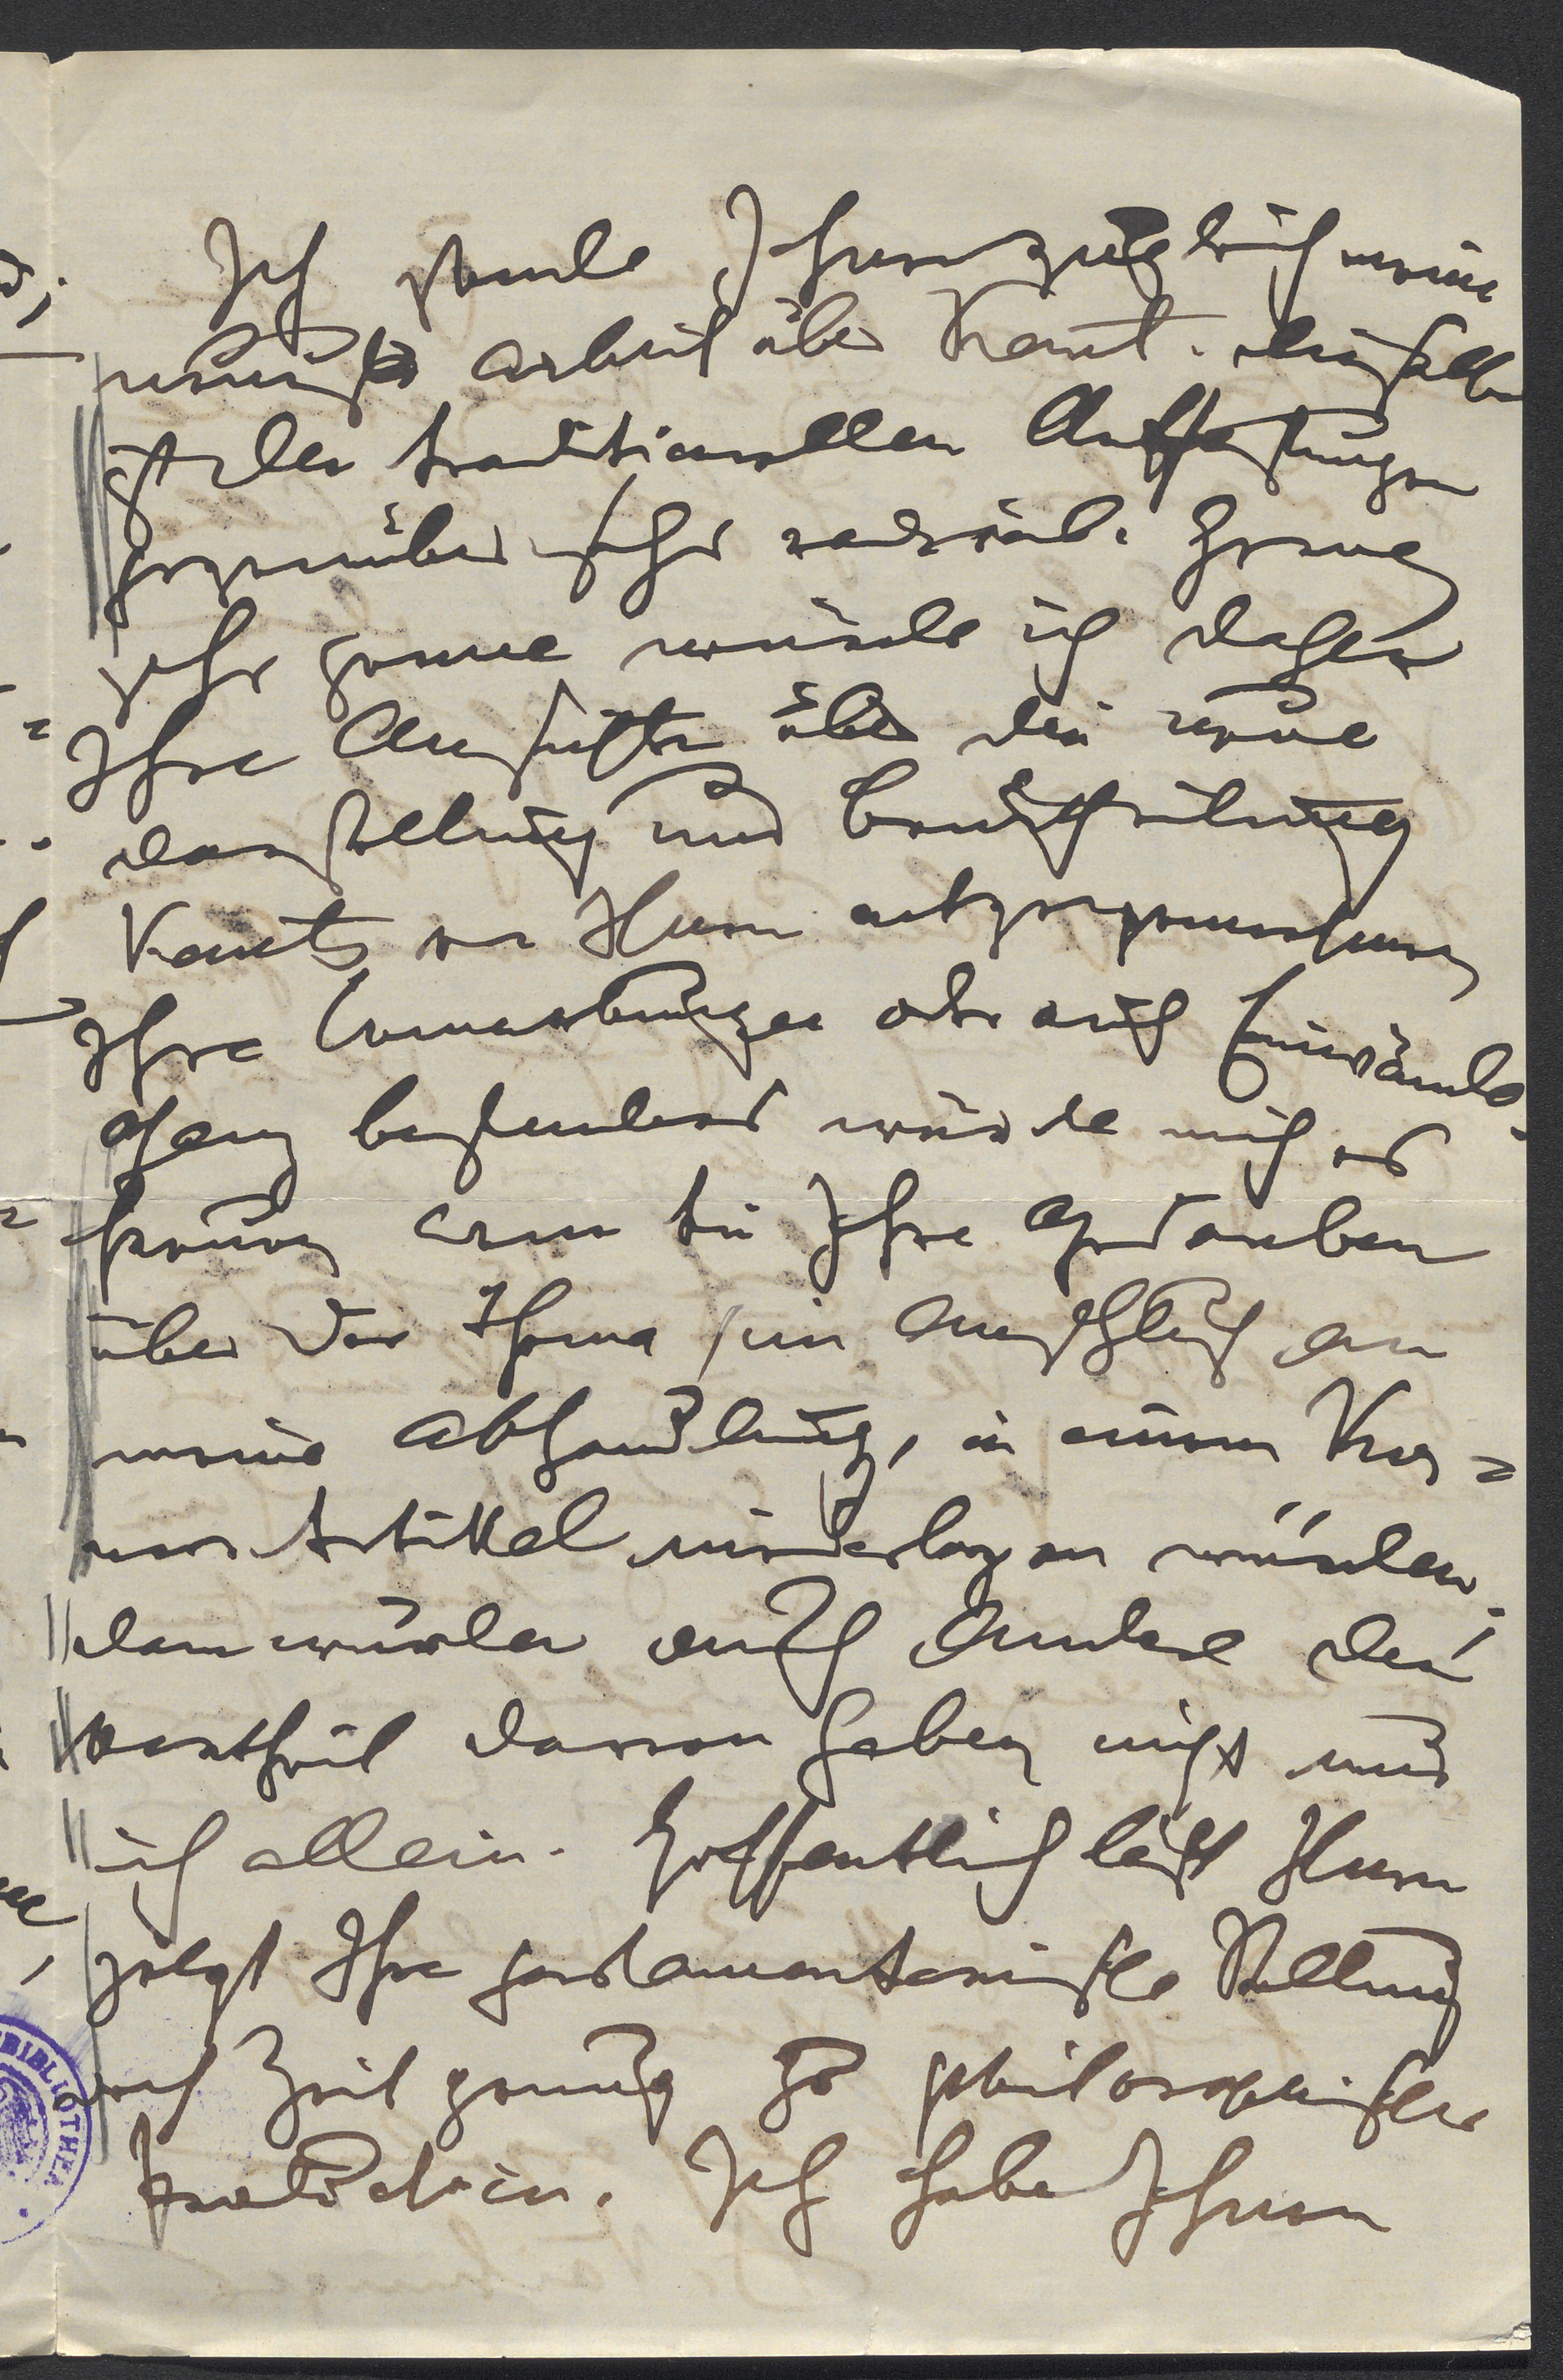 Ich sende Ihnen zugleich meine
neueste Arbeit über Kant. dieselbe
ist den traditionellen Auffassungen
gegenüber sehr radicale Ganz
sehr gerne würde ich daher
Ihre Ansichten über die neue
darstellung und beurtheilung
Kants von Ihnen entgegennehmen
Ihre bemerkungen oder auch Einwände.
Ganz besonders würde mich es
freuen wenn Sie Ihre Gedanken
über das Thema im Anschluss an
meine Abhandlung, in einem
Artikel niederlegen würden,
dann würden auch Andere den
Vortheil davon haben, nicht nur
ich allein. Hoffentlich lässt Ihnen
jetzt Ihre parlamentarische Stellung
noch Zeit genug zu philosophischer
Production. Ich habe Ihnen
BIBLIOTHEK